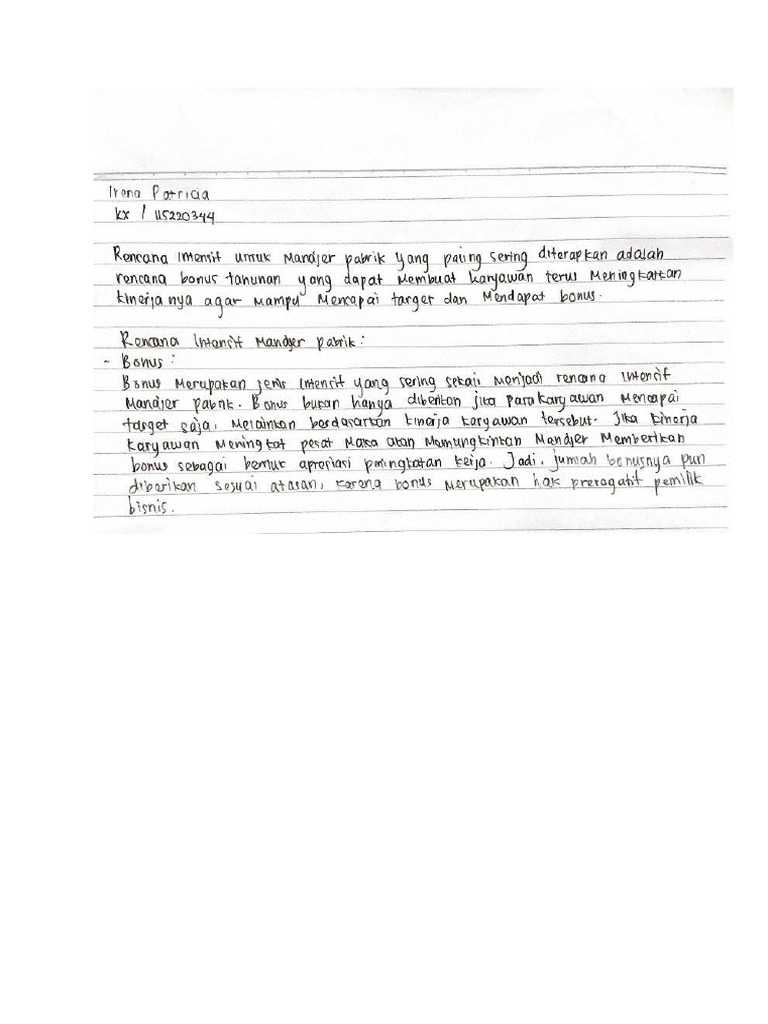 Irena Patricia
KX / 115220344
Rencana Intensif untuk Manajer pabrik yang paling sering diterapkan adalah
rencana bonus tahunan yang dapat Membuat karyawan terus Meningkatkan
kinerjanya agar Mampu Mencapai target dan Mendapat bonus.
Rencana Intensif Manajer Pabrik :
- Bonus :
Bonus Merupakan jenis Intensif yang sering sekali Menjadi rencana Intensif
Manajer pabrik. Bonus bukan hanya diberikan jika para karyawan Mencapai
target saja, Melainkan berdasarkan kinerja karyawan tersebut. Jika kinerja
karyawan Meningkat pesat Maka akan Memungkinkan Manajer Memberikan
bonus sebagai bentuk apresiasi peningkatan kerja. Jadi, jumlah bonusnya pun
diberikan sesuai atasan, karena bonus Merupakan hak prerogatif pemilik
bisnis.